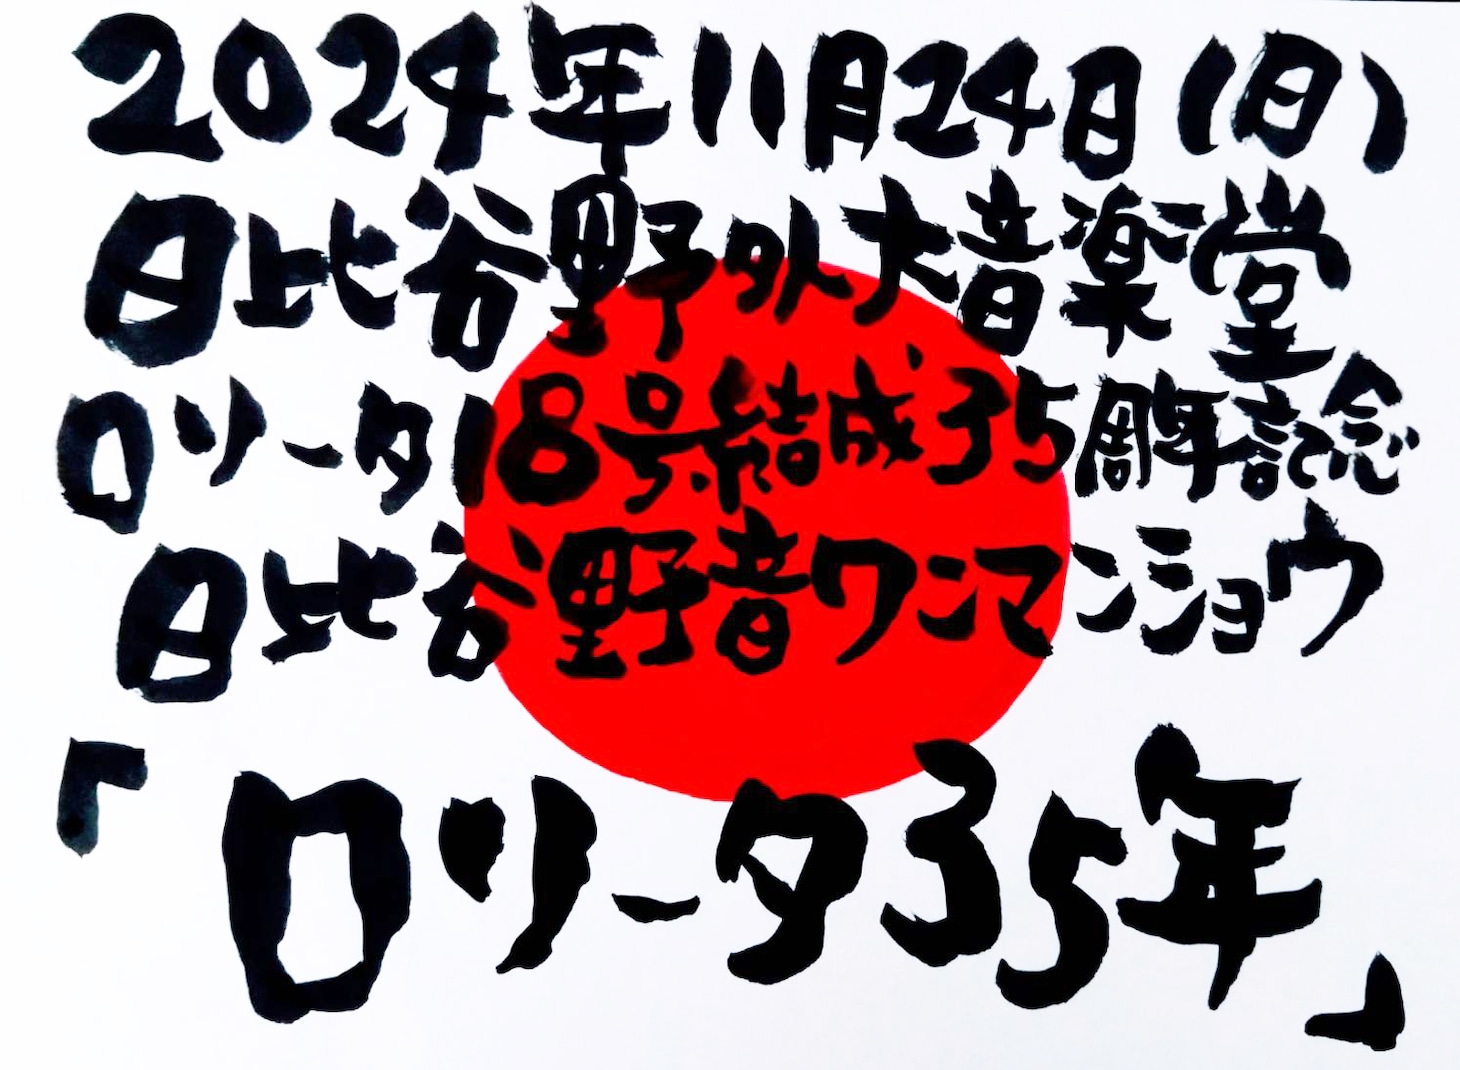 2024年11月24日(日)
日比谷野外大音楽堂
ロリータ18号結成35周年記念
日比谷野音ワンマンショウ
「ロリータ35年」